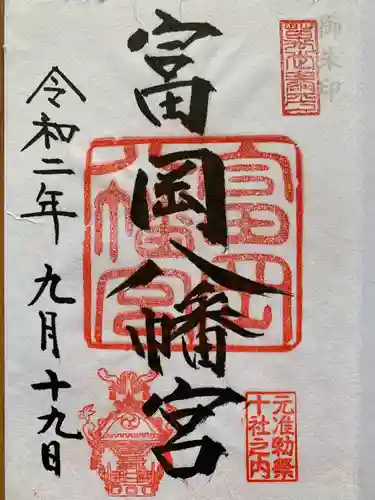 御朱印
富岡八幡宮
令和二年 九月十九日
富岡八幡宮
元准勅祭
十社之内